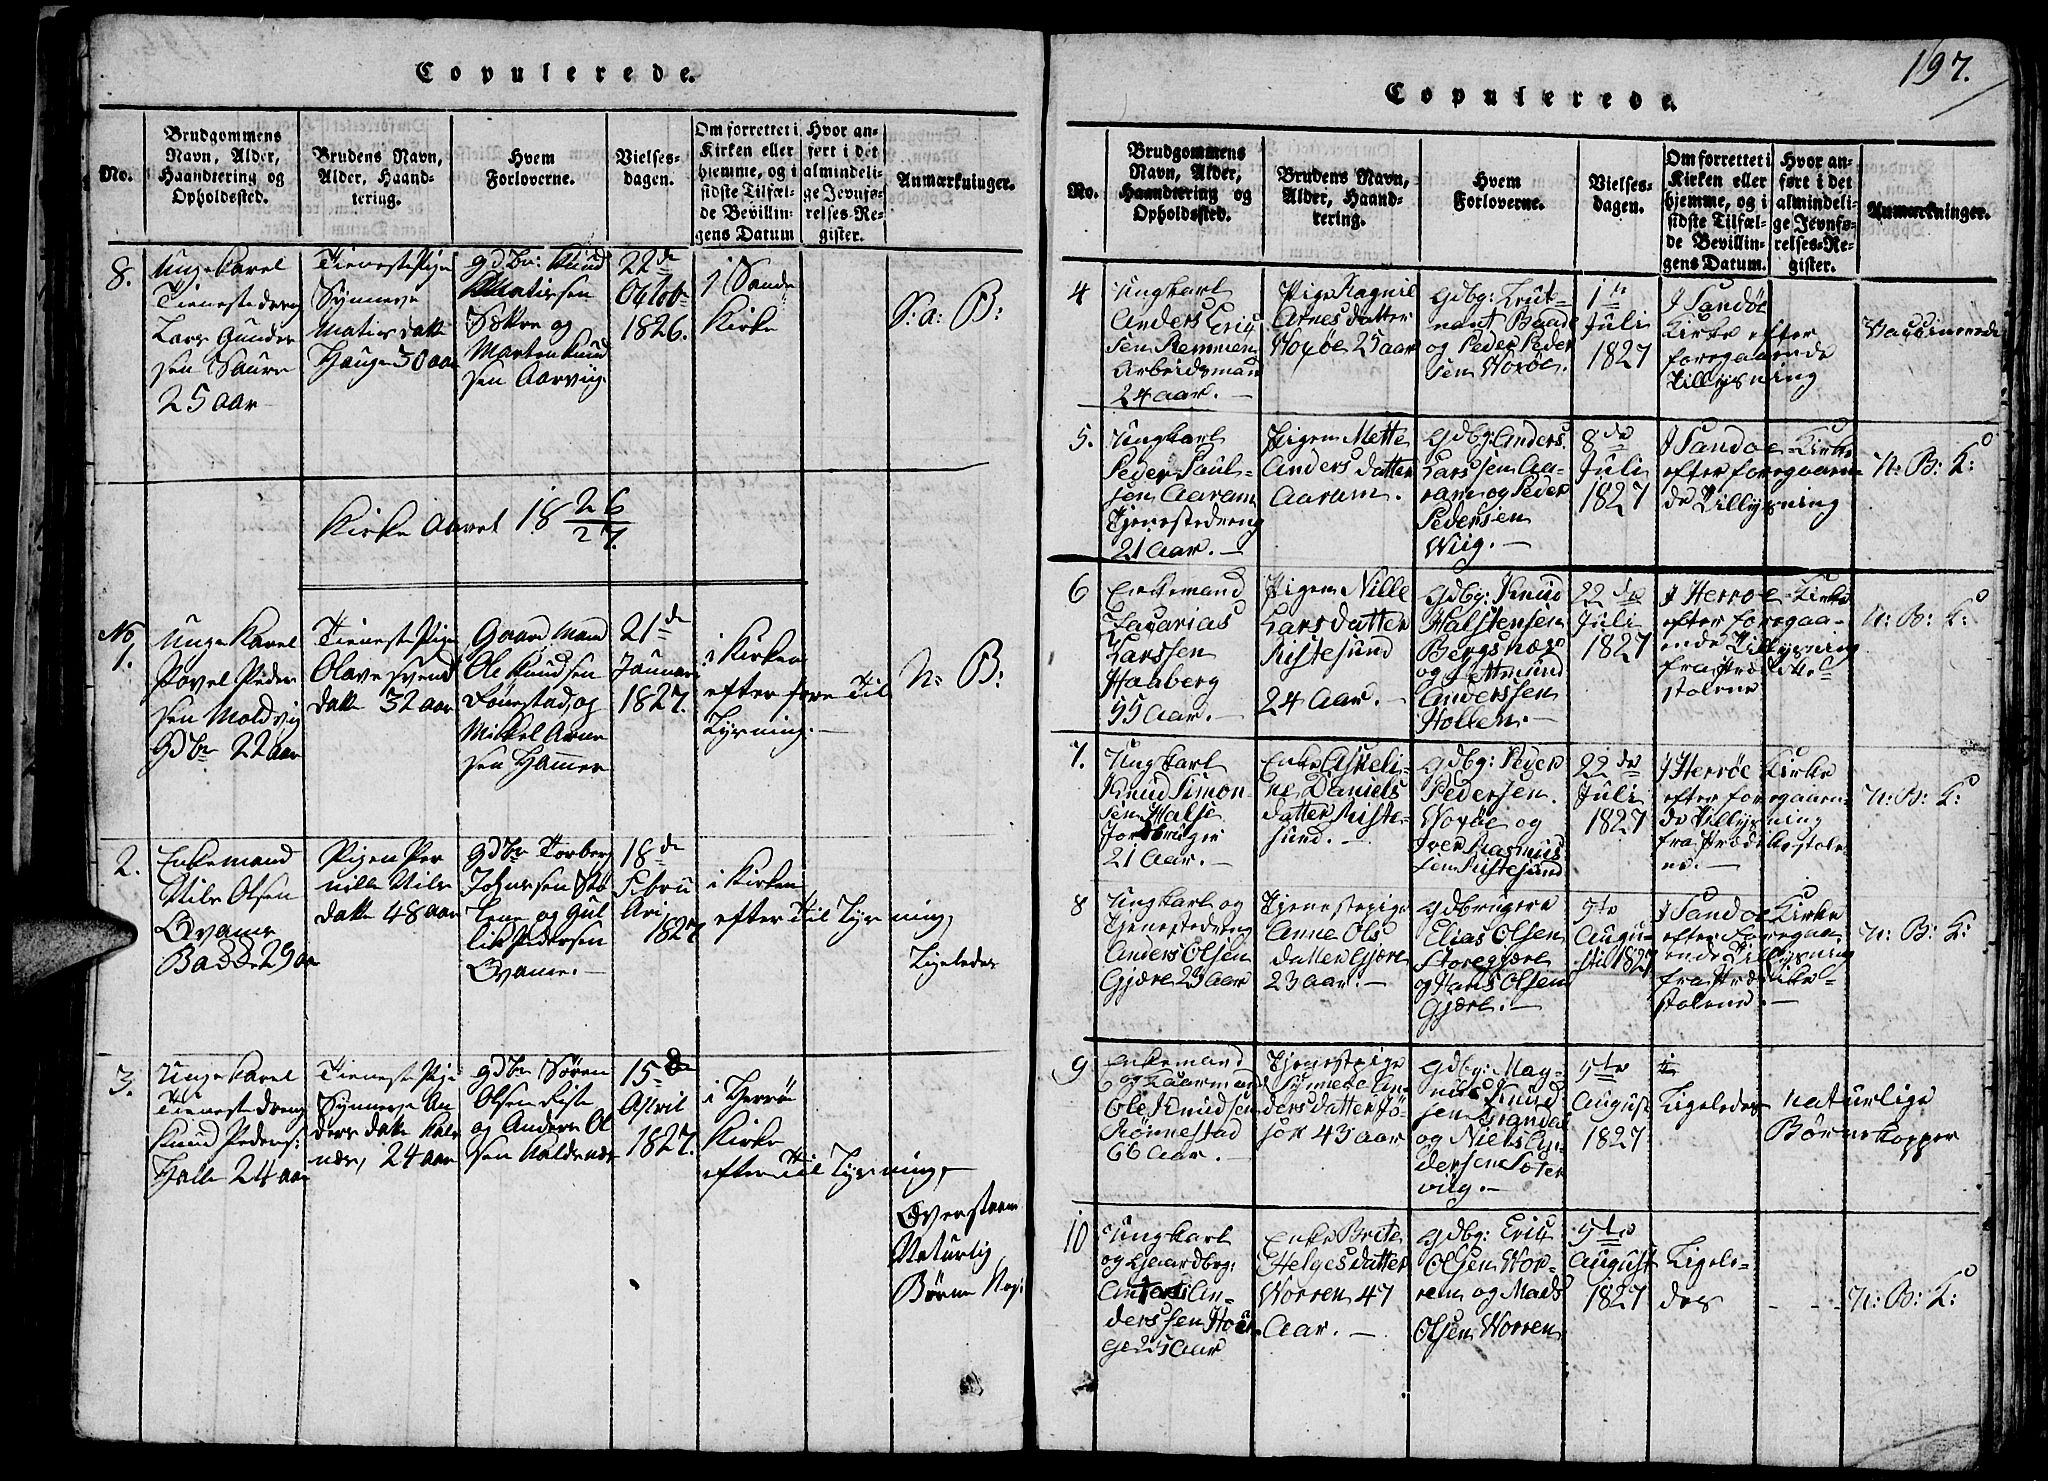 Copulerede.
No.
Brudgommens
Navn, Alder,
Haandtering og
Opholdssted.
Brudens Navn,
Alder, Haand-
tering.
Hvem
Forloverne.
Vielses-
dagen.
Om forrettet i
Kirken eller
hjemme, og i
sidste Tilfæl-
de Bevillin-
gens Datum
Hvor an-
ført i det
almindeli-
ge Jevnfø-
relses-Re-
gister.
Anmærkninger.
8.
Unge Karel
Tienestedreng
Lars Gunder
sen Saure
25 aar
Tieneste Pige
Synneve
Maties datt
Hauge 30 aar
gdbr: Knud
Matissen
og
Marten Knud
sen Aarviig
22de
Octob
1826.
i Sande
Kirke
S: a: B:
Kirke Aaret 1826/27.
No
1.
Unge Karel
Povel Peder
sen Moldvig
gdbr 22 aar
Tieneste Pige
Olave Svend
datt 32 aar
Gaard Mand
Ole Knudsen
og
Mickel Arne
sen Hammer
21de
Januar
1827.
i Kirken
efter fore Til
Lysning.
N: B:
2.
Enkemand
Nils Olsen
29 aar
Pigen Per
nille Nils
datt 48 aar
gdbr Torber
Johnssen
og Gul
lik Pedersen
18de
Febru
ari
1827.
i Kirken
efter Til Lysning,
Ligeledes
3.
Unge Karel
Tienestedreng
Knud Peders:
24 aar
Tieneste Pige
Synneve An
ders datt
24 aar
gdbr Sören
Olsen
og Anders Ol
sen
15de
April
1827.
i Herrö
Kirke
efter Til Lysning,
Overstaaen
Naturlig
Börne Kop:
197.
Copulerede.
No.
Brudgommens
Navn, Alder,
Haandtering og
Opholdssted.
Brudens Navn,
Alder, Haand-
tering.
Hvem
Forloverne.
Vielses-
dagen.
Om forrettet i
Kirken eller
hjemme, og i
sidste Tilfæl-
de Bevillin-
gens Datum.
Hvor an-
ført i det
almindeli-
ge Jevnfø-
relses-Re-
gister.
Anmærkninger.
4
Ungkarl
Anders Eric
sen Remmen
Arbeidsmand
24 aar.
Pige Ragnil
Arnes datter
Woxöe 25 aar
Gdbg: Leut-
nant Baade
og Peder Peder
sen Woxöe.
1te
Juli
1827
I Sandöe
Kirke efter
foregaaende
Tillysning
Vaccinerede
5.
Ungkarl
Peder Paul-
sen Aaram
Tjenestedreng
21 Aar.
Pigen Mette
Anders datter
Aaram.
Gdbg: Anders
Larssen Aa-
ram og Peder
Pedersen
Wiig.
8de
Juli
1827
I Sandoe Kirke
efter foregaaen
de Tillysning
N: B: K:
6
Enkemand
Zacarias
Larssen
Haaberg
55 Aar.
Pigen Nille
Lars datter
Ristesund
24 Aar.
Gdbg: Knud
Halstensen
Bergsnæs
og Ettmund
Anderssen
Holten.
22de
Juli
1827
I Herroe Kirke
efter foregaa-
ende Tillysning
fra Prædikel
stolene
N: B: K:
7.
Ungkarl
Knud Simon-
sen Halse
Jordbruger
21 Aar.
Enke Askeli-
ne Daniels
datter Riste-
sund.
Gdbg: Peder
Pedersen
Woxöe og
Iver Rasmus
sen Ristesund
22de
Juli
1827
I Herröe Kirke
efter foregaaen-
de Tillysning
fra Prædikestole-
ne.
N: B: K:
8
Ungkarl og
Tjenestedreng
Anders Olsen
Gjære 23 Aar
Tjenestepige
Anne Ols
datter Gjære
23 Aar.
Gdbrugere
Elias Olsen
Storegjære
og Hans Olsen
Gjære.
5te
Augu-
sti 1827
I Sandoe Kirke
efter foregaa-
ende Tillysning
fra Prædikel-
stolene.
N: B: K:
9
Enkemand
og Gaarmand
Ole Knudsen
Rönnestad
66 Aar.
Tjenestepige
Synneve An-
ders datter
43 aar
Gdbg: Mag-
nus Knud
sen Brandal
og Niels An-
dersen Sæter
viig.
5te
August
1827
Ligeledes
naturlige
Börnekopper
10
Ungkarl
og Gaardbrg:
An-
derssen
25 Aar
Enke Brite
Helges datter
Worren 47
Aar.
Gdbg: Eric
Olsen Wor-
ren og Mads
Olsen Worren
5te
August
1827
Ligele-
des
N: B: K: